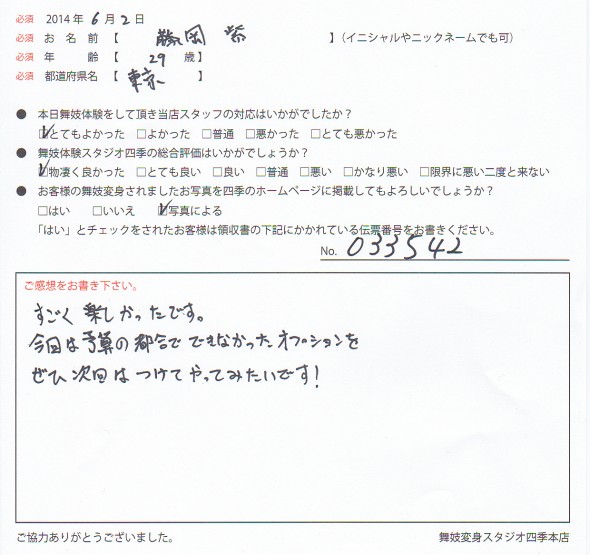 必須 2014年 6月 2日
必須 お名前【 藤岡 紫 】(イニシャルやニックネームでも可)
必須 年齢【 29 歳】
必須 都道府県名【 東京 】
● 本日舞妓体験をして頂き当店スタッフの対応はいかがでしたか?
☑とてもよかった □よかった □普通 □悪かった □とても悪かった
● 舞妓体験スタジオ四季の総合評価はいかがでしょうか?
☑物凄く良かった □とても良い □良い □普通 □悪い □かなり悪い □限界に悪い二度と来ない
● お客様の舞妓変身されましたお写真を四季のホームページに掲載してもよろしいでしょうか?
□はい □いいえ ☑写真による
「はい」とチェックをされたお客様は領収書の下記にかかれている伝票番号をお書きください。
No. 033542
ご感想をお書き下さい。
すごく楽しかったです。
今回は予算の都合でできなかったオプションを
ぜひ次回はつけてやってみたいです!
ご協力ありがとうございました。 舞妓変身スタジオ四季本店